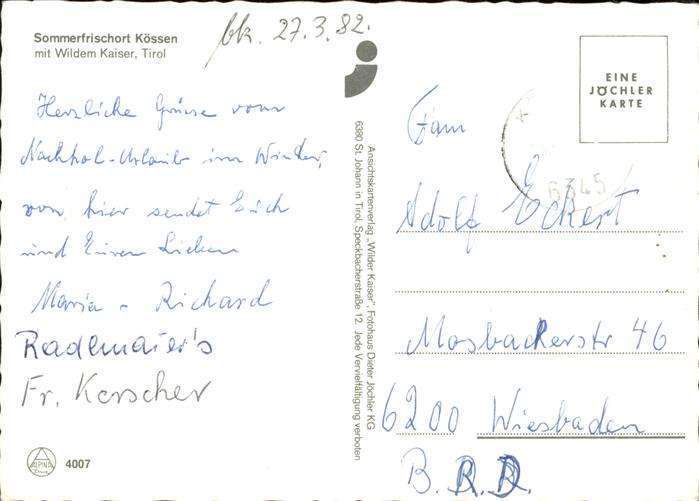 Sommerfrischort Kössen
mit Wildem Kaiser, Tirol
bk. 27.3.82.
Herzliche Grüsse vom
Nachhol-Urlaub im Winter,
von hier sendet Euch
und Euren Lieben
Maria u Richard
Rademaier's
Fr. Kerscher
ALPINA
Druck
4007
Ansichtskartenverlag „Wilder Kaiser", Fotohaus Dieter Jöchler KG
6380 St. Johann in Tirol, Speckbacherstraße 12. Jede Vervielfältigung verboten
EINE
JÖCHLER
KARTE
Fam
Adolf Eckert
Mosbacherstr 46
6200 Wiesbaden
B.R.D.